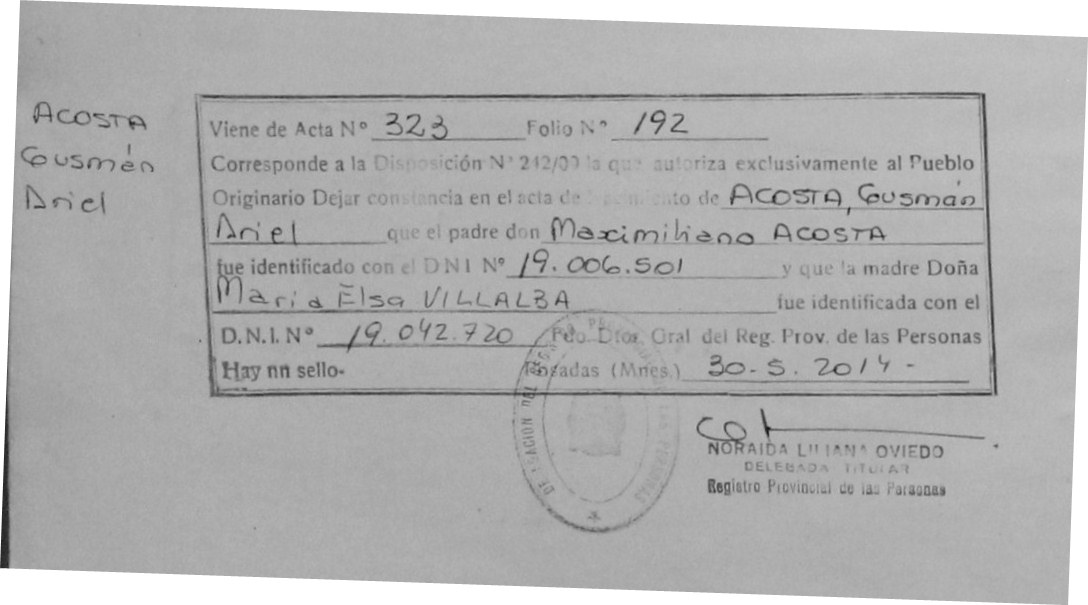 ACOSTA
Gusmán
Ariel
Viene de Acta Nº 323 Folio Nº 192
Corresponde a la Disposición Nº 242/09 la que autoriza exclusivamente al Pueblo
Originario Dejar constancia en el acta de de ACOSTA, Gusmán
Ariel que el padre don Maximiliano ACOSTA
fue identificado con el DNI Nº 19.006.501 y que la madre Doña
Maria Elsa VILLALBA fue identificada con el
D.N.I. Nº 19.042.720 Fdo. Dtor. Gral del Reg. Prov. de las Personas
Hay nn sello- Posadas (Mnes.) 30-5. 2014 -
NORAIDA LILIANA OVIEDO
DELEGADA TITULAR
Registro Provincial de las Personas